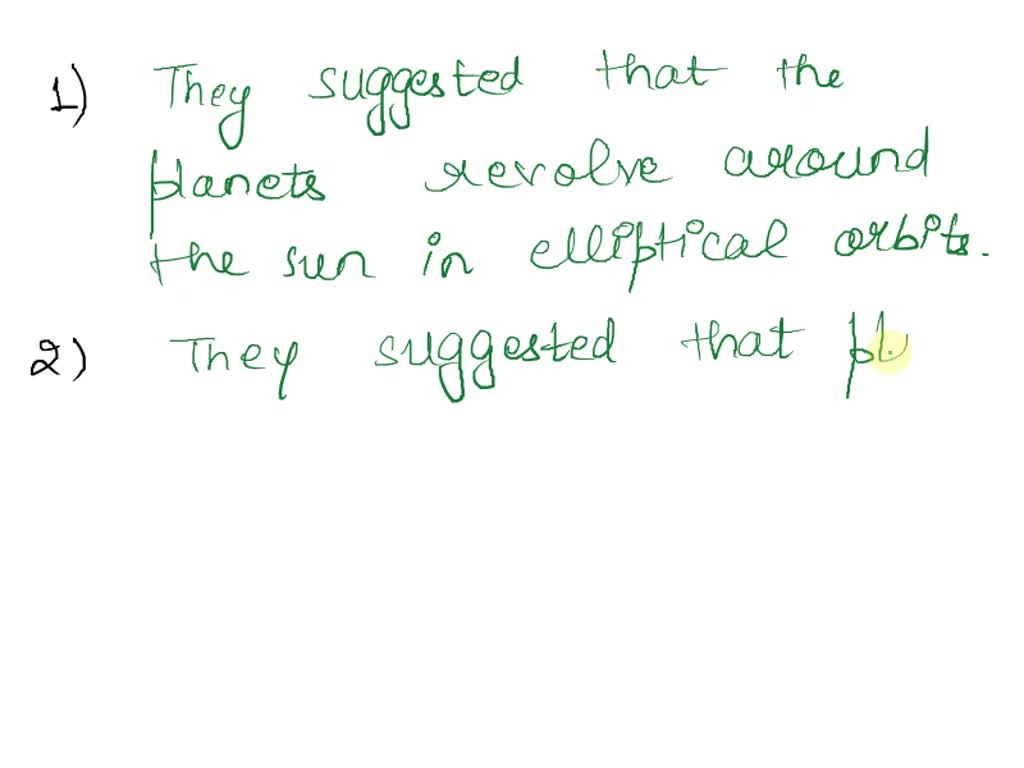 1) They suggested that the
planets revolve around
the sun in elliptical orbits.
2) They suggested that pl